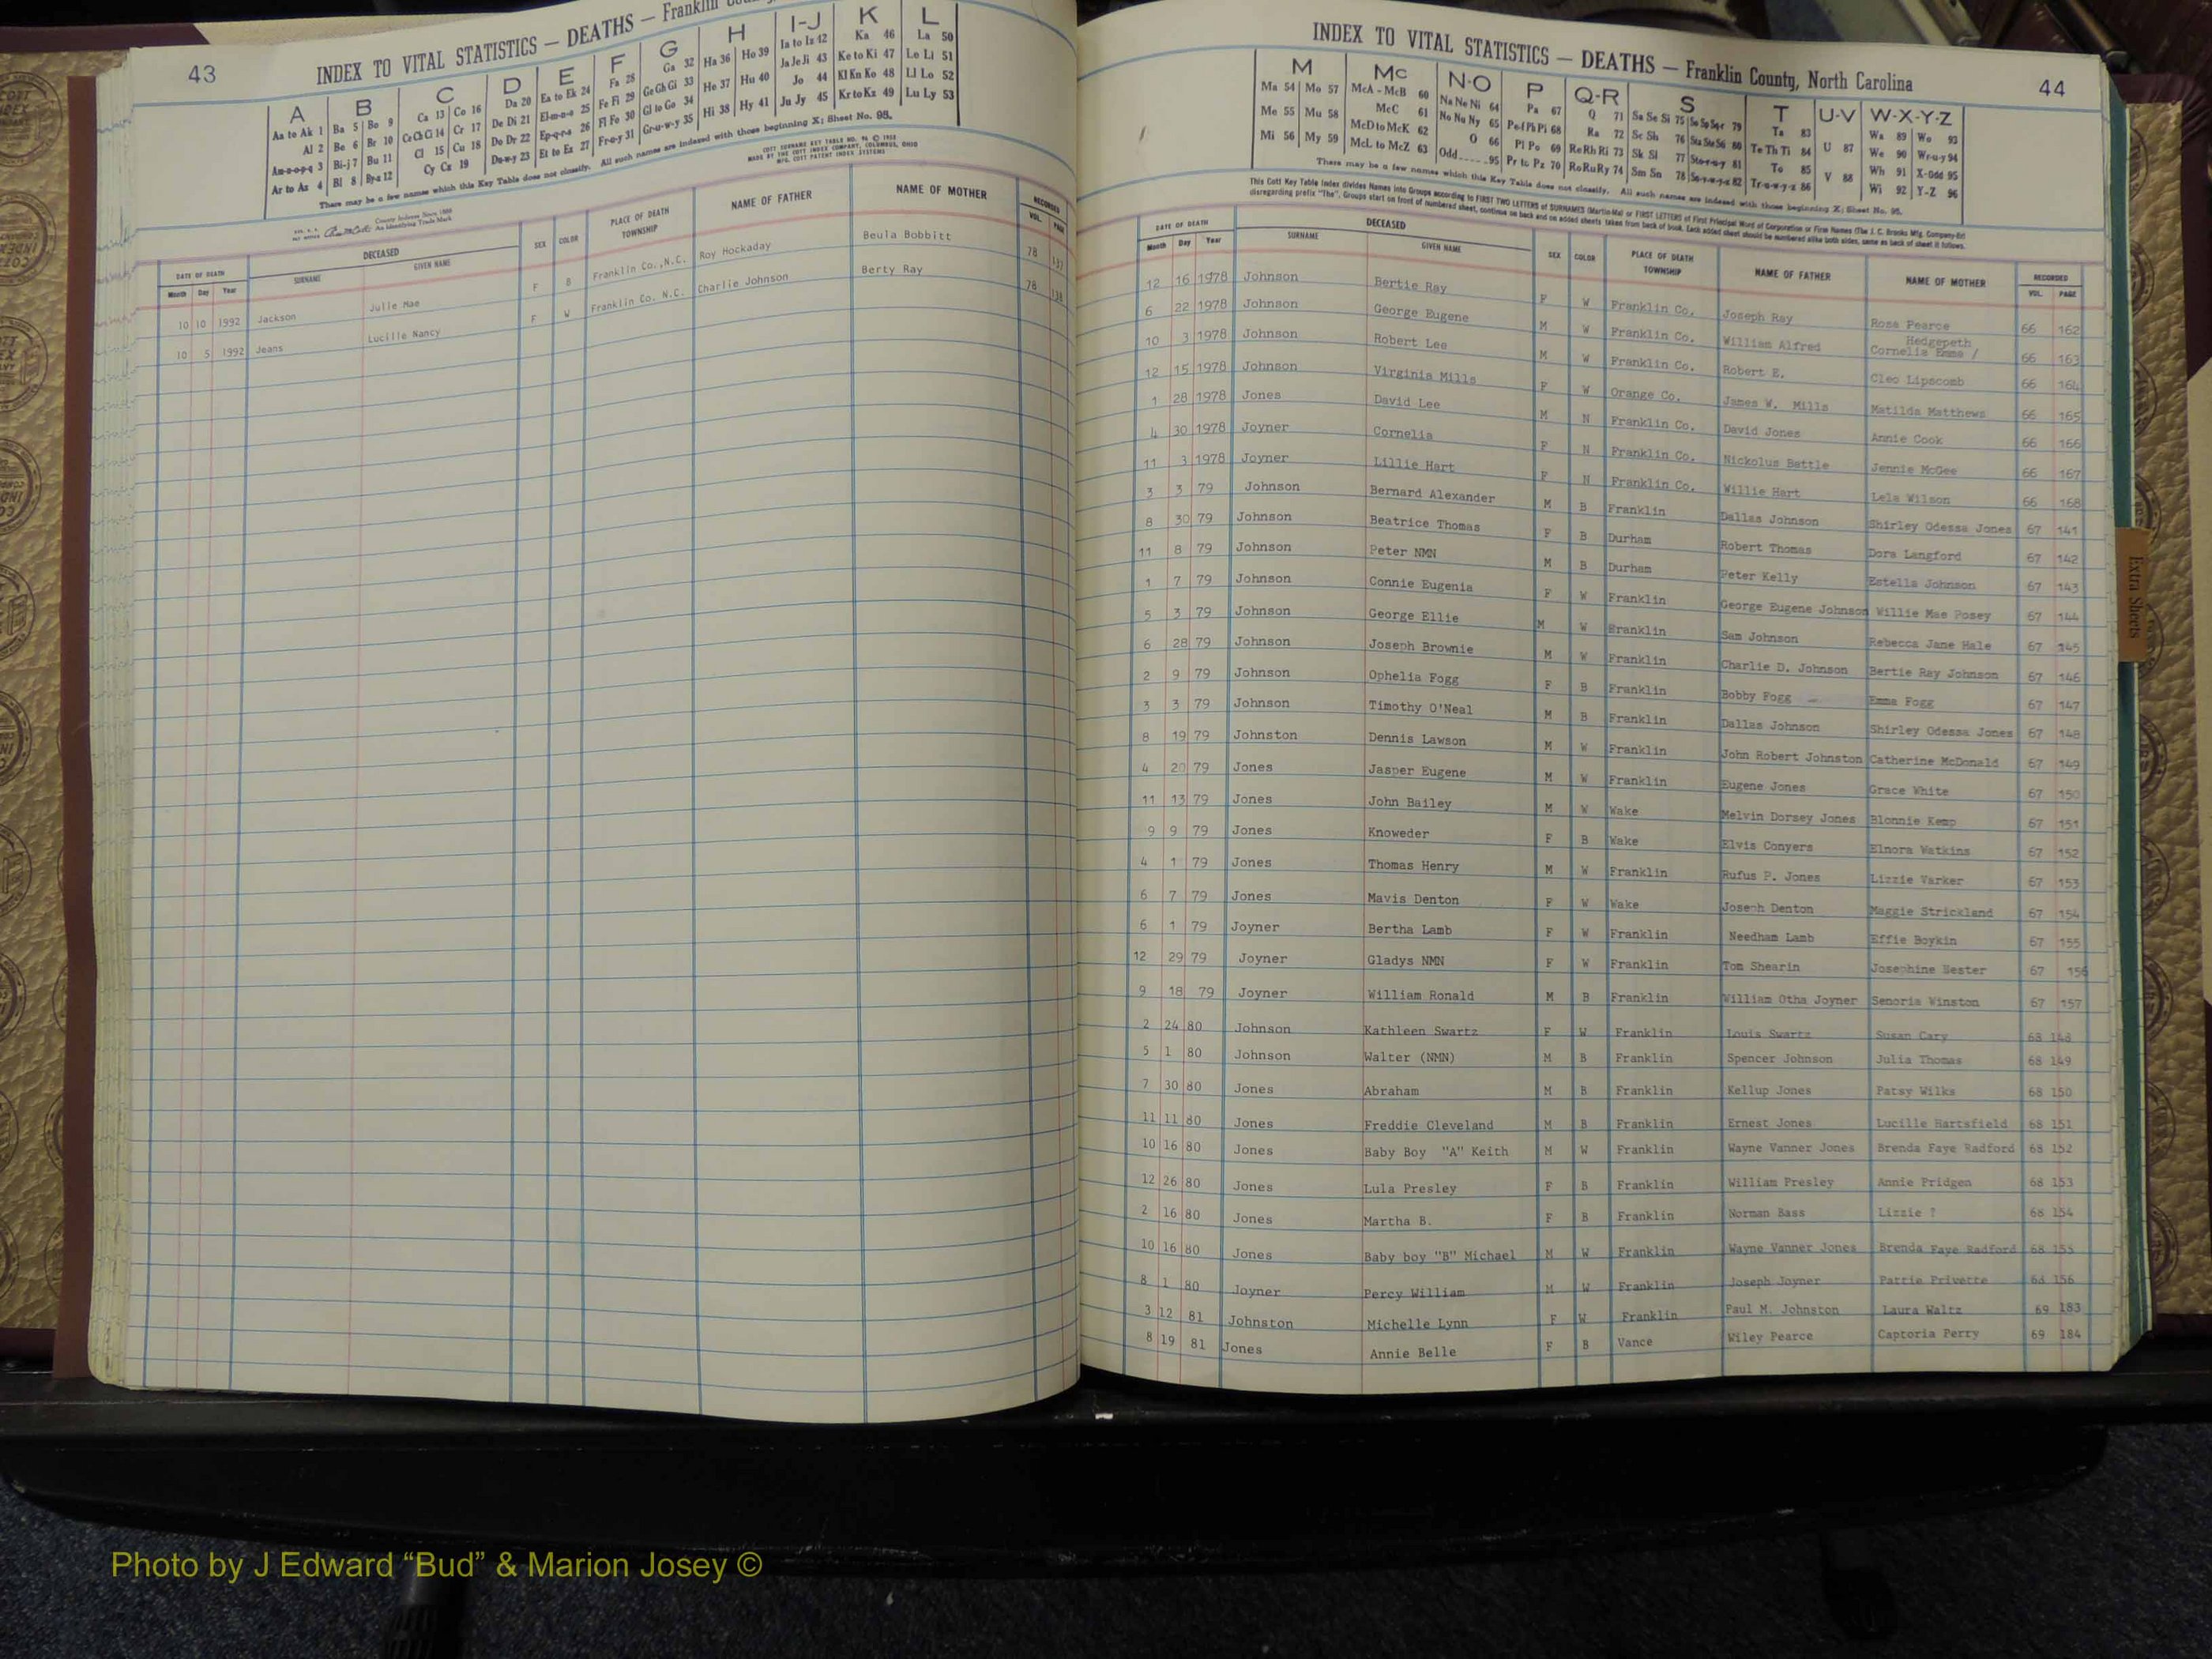 43
INDEX TO VITAL STATISTICS — DEATHS — Franklin
A B C D E F G H I-J K L
Aa to Ak 1 Ba 5 Bo 9 Ca 13 Co 16 Da 20 Ea to Ek 24 Fa 28 Ga 32 Ha 36 Ho 39 Ia to Iz 42 Ka 46 La 50
Al 2 Be 6 Br 10 Ce Ch Ci 14 Cr 17 De Di 21 El-m-n-o 25 Fe Fi 29 Ge Gh Gi 33 He 37 Hu 40 Ja Je Ji 43 Ke to Ki 47 Le Li 51
Am-n-o-p-q 3 Bi-j 7 Bu 11 Cl 15 Cu 18 Do Dr 22 Ep-q-r-s 26 Fl Fo 30 Gl to Go 34 Hi 38 Hy 41 Jo 44 Kl Kn Ko 48 Ll Lo 52
Ar to Az 4 Bl 8 By-z 12 Cy Cz 19 Du-w-y 23 Et to Ez 27 Fr-o-y 31 Gr-u-w-y 35 Ju Jy 45 Kr to Kz 49 Lu Ly 53
There may be a few names which this Key Table does not classify. All such names are indexed with those beginning X; Sheet No. 95.
DATE OF DEATH DECEASED SEX COLOR PLACE OF DEATH TOWNSHIP NAME OF FATHER NAME OF MOTHER RECORDED
Month Day Year SURNAME GIVEN NAME VOL. PAGE
10 10 1992 Jackson Julie Mae F B Franklin Co.,N.C. Roy Hockaday Beula Bobbitt 78 137
10 5 1992 Jeans Lucille Nancy F W Franklin Co. N.C. Charlie Johnson Berty Ray 78 138
INDEX TO VITAL STATISTICS — DEATHS — Franklin County, North Carolina
44
M Mc N-O P Q-R S T U-V W-X-Y-Z
Ma 54 Mo 57 McA - McB 60 Na Ne Ni 64 Pa 67 Q 71 Sa Se Si 75 So Sp Sq-r 79 Ta 83 U 87 Wa 89 Wo 93
Me 55 Mu 58 McC 61 No Nu Ny 65 Pe-f Ph Pi 68 Ra 72 Sc Sh 76 Sta Ste S6 80 Te Th Ti 84 We 90 Wr-u-y 94
Mi 56 My 59 McD to McK 62 O 66 Pl Po 69 Re Rh Ri 73 Sk Sl 77 Sto-r-u-y 81 To 85 V 88 Wh 91 X-Odd 95
McL to McZ 63 Odd 95 Pr to Pz 70 Ro Ru Ry 74 Sm Sn 78 Su-v-w-y-z 82 Tr-u-w-y-z 86 Wi 92 Y-Z 96
There may be a few names which this Key Table does not classify. All such names are indexed with those beginning X; Sheet No. 95.
This Cott Key Table Index divides Names into Groups according to FIRST TWO LETTERS of SURNAMES (Martin-Ma) or FIRST LETTERS of First Principal Word of Corporation or Firm Names (The J. C. Brooks Mfg. Company-Br)
disregarding prefix "The". Groups start on front of numbered sheet, continue on back and on added sheets taken from back of book. Each added sheet should be numbered alike both sides, same as back of sheet it follows.
DATE OF DEATH DECEASED SEX COLOR PLACE OF DEATH TOWNSHIP NAME OF FATHER NAME OF MOTHER RECORDED
Month Day Year SURNAME GIVEN NAME VOL. PAGE
12 16 1978 Johnson Bertie Ray F W Franklin Co. Joseph Ray Rosa Pearce 66 162
6 22 1978 Johnson George Eugene M W Franklin Co. William Alfred Hedgepeth Cornelia Emma / 66 163
10 3 1978 Johnson Robert Lee M W Franklin Co. Robert E. Cleo Lipscomb 66 164
12 15 1978 Johnson Virginia Mills F W Orange Co. James W. Mills Matilda Matthews 66 165
1 28 1978 Jones David Lee M N Franklin Co. David Jones Annie Cook 66 166
4 30 1978 Joyner Cornelia F N Franklin Co. Nickolus Battle Jennie McGee 66 167
11 3 1978 Joyner Lillie Hart F N Franklin Co. Willie Hart Lela Wilson 66 168
3 3 79 Johnson Bernard Alexander M B Franklin Dallas Johnson Shirley Odessa Jones 67 141
8 30 79 Johnson Beatrice Thomas F B Durham Robert Thomas Dora Langford 67 142
11 8 79 Johnson Peter NMN M B Durham Peter Kelly Estella Johnson 67 143
1 7 79 Johnson Connie Eugenia F W Franklin George Eugene Johnson Willie Mae Posey 67 144
5 3 79 Johnson George Ellie M W Branklin Sam Johnson Rebecca Jane Hale 67 145
6 28 79 Johnson Joseph Brownie M W Franklin Charlie D. Johnson Bertie Ray Johnson 67 146
2 9 79 Johnson Ophelia Fogg F B Franklin Bobby Fogg Emma Fogg 67 147
3 3 79 Johnson Timothy O'Neal M B Franklin Dallas Johnson Shirley Odessa Jones 67 148
8 19 79 Johnston Dennis Lawson M W Franklin John Robert Johnston Catherine McDonald 67 149
4 20 79 Jones Jasper Eugene M W Franklin Eugene Jones Grace White 67 150
11 13 79 Jones John Bailey M W Wake Melvin Dorsey Jones Blonnie Kemp 67 151
9 9 79 Jones Knoweder F B Wake Elvis Conyers Elnora Watkins 67 152
4 1 79 Jones Thomas Henry M W Franklin Rufus P. Jones Lizzie Varker 67 153
6 7 79 Jones Mavis Denton F W Wake Joseph Denton Maggie Strickland 67 154
6 1 79 Joyner Bertha Lamb F W Franklin Needham Lamb Effie Boykin 67 155
12 29 79 Joyner Gladys NMN F W Franklin Tom Shearin Josephine Hester 67 156
9 18 79 Joyner William Ronald M B Franklin William Otha Joyner Senoria Winston 67 157
2 24 80 Johnson Kathleen Swartz F W Franklin Louis Swartz Susan Cary 68 148
5 1 80 Johnson Walter (NMN) M B Franklin Spencer Johnson Julia Thomas 68 149
7 30 80 Jones Abraham M B Franklin Kellup Jones Patsy Wilks 68 150
11 11 80 Jones Freddie Cleveland M B Franklin Ernest Jones Lucille Hartsfield 68 151
10 16 80 Jones Baby Boy "A" Keith M W Franklin Wayne Vanner Jones Brenda Faye Radford 68 152
12 26 80 Jones Lula Presley F B Franklin William Presley Annie Pridgen 68 153
2 16 80 Jones Martha B. F B Franklin Norman Bass Lizzie ? 68 154
10 16 80 Jones Baby boy "B" Michael M W Franklin Wayne Vanner Jones Brenda Faye Radford 68 155
8 1 80 Joyner Percy William M W Franklin Joseph Joyner Pattie Privette 68 156
3 12 81 Johnston Michelle Lynn F W Franklin Paul M. Johnston Laura Waltz 69 183
8 19 81 Jones Annie Belle F B Vance Wiley Pearce Captoria Perry 69 184
Extra Sheets
Photo by J Edward “Bud” & Marion Josey ©